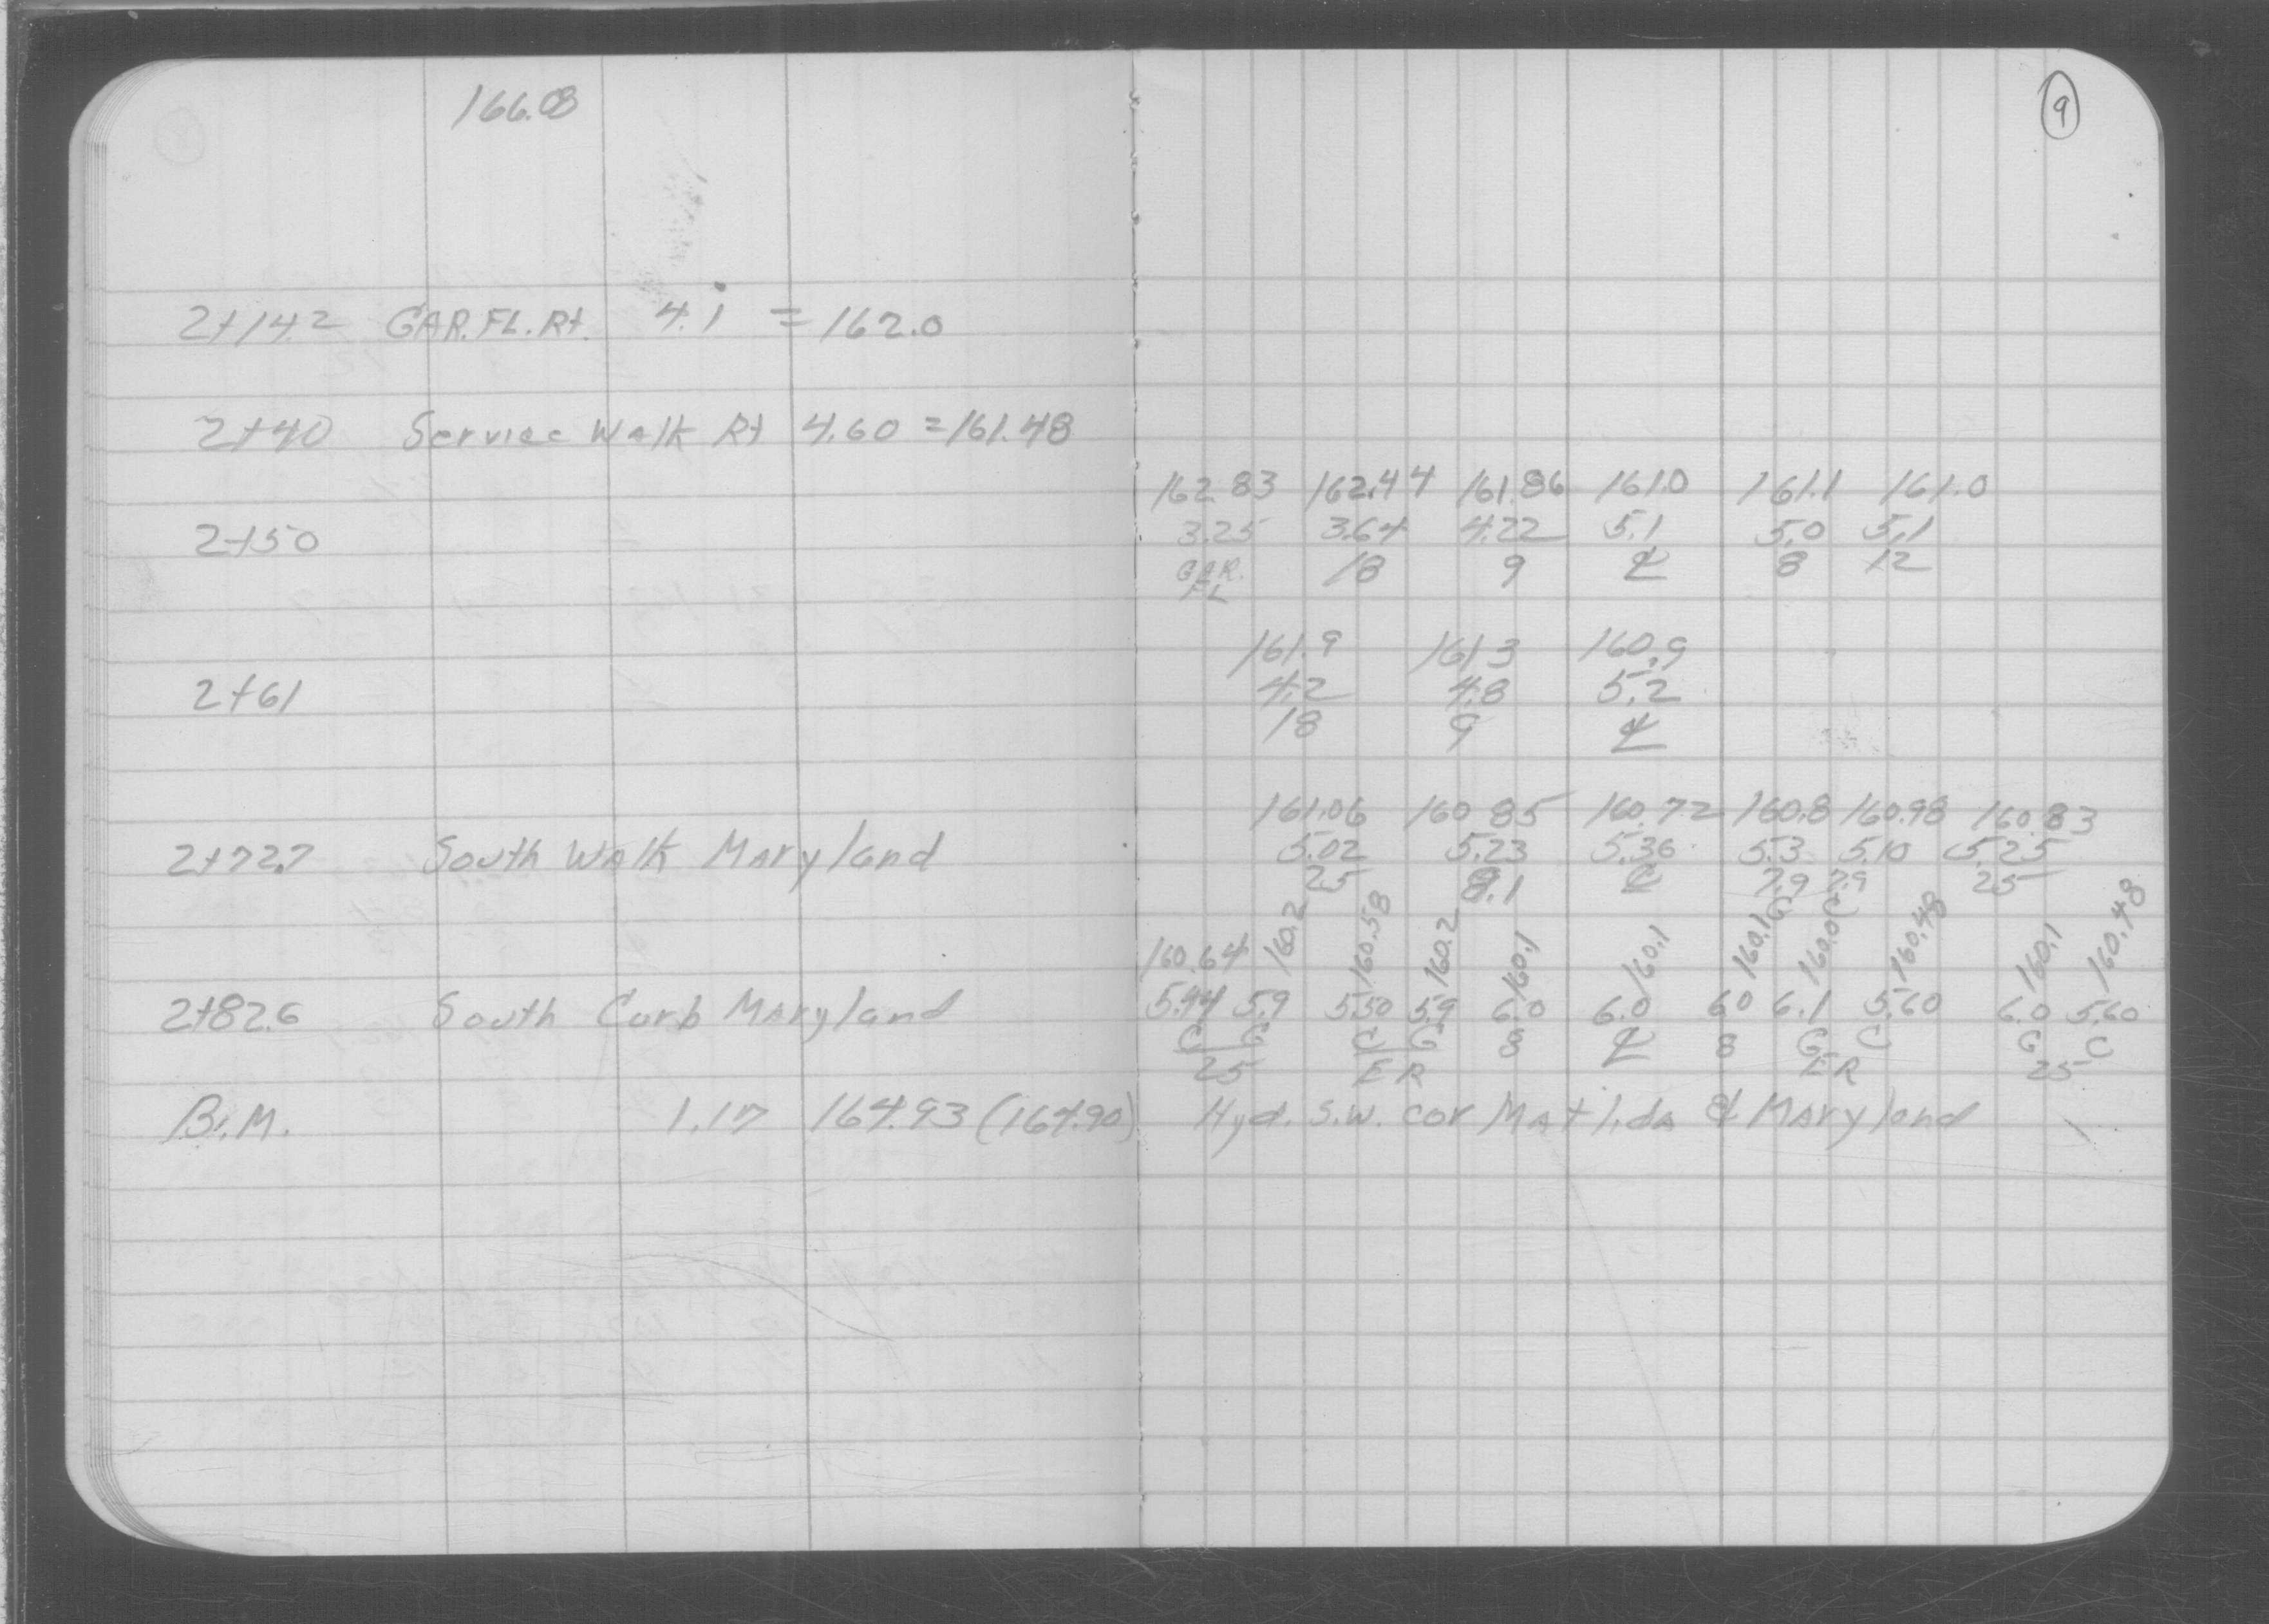 166.08
9
2+14.2 GAR. FL. Rt. 4.1 = 162.0
2+40 Service Walk Rt 4.60 = 161.48
162.83 162.44 161.86 161.0 161.1 161.0
2+50 3.25 3.64 4.22 5.1 5.0 5.1
GAR. FL 18 9 ℄ 8 12
161.9 161.3 160.9
2+61 4.2 4.8 5.2
18 9 ℄
161.06 160.85 160.72 160.8 160.98 160.83
2+72.7 South Walk Maryland 5.02 5.23 5.36 5.3 5.10 5.25
25 8.1 ℄ 7.9 7.9 25
G C
160.64 160.2 160.58 160.2 160.1 160.1 160.1 160.0 160.48 160.1 160.48
2+82.6 South Curb Maryland 5.44 5.9 5.50 5.9 6.0 6.0 6.0 6.1 5.60 6.0 5.60
C G C G 8 ℄ 8 G C G C
25 ER ER 25
B.M. 1.17 164.93 (164.90) Hyd. S.W. cor Matilda & Maryland